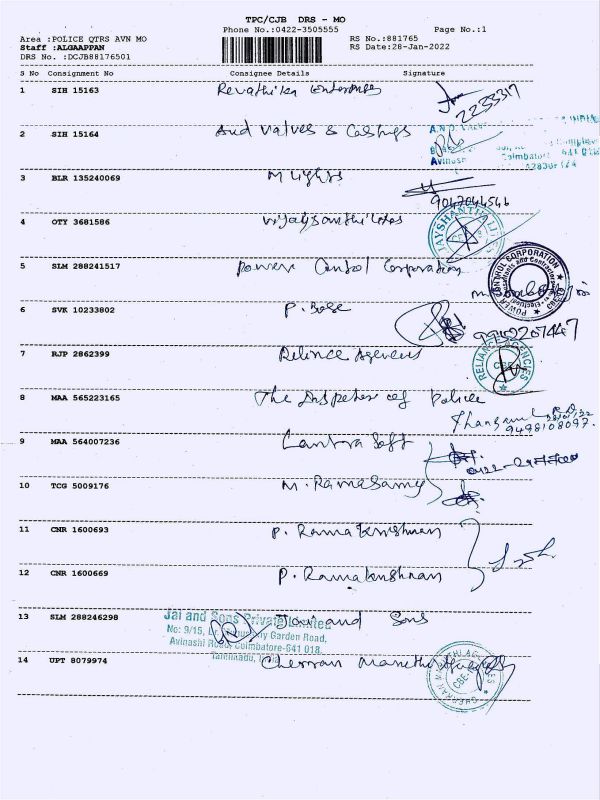 TPC/CJB DRS - MO
Phone No.:0422-3505555 Page No.:1
Area :POLICE QTRS AVN MO RS No.:881765
Staff :ALGAAPPAN RS Date:28-Jan-2022
DRS No. :DCJB88176501
S No Consignment No Consignee Details Signature
1 SIH 15163 Revathika Enterprises
2233317
2 SIH 15164 And Valves & Castings
Avinash Coimbatore
3 BLR 135240069 M Lights
9047044546
4 OTY 3681586
5 SLM 288241517 Power Control Corporation
POWER CONTROL CORPORATION
6 SVK 10233802 P. Bose
7 RJP 2862399 Relince Agencies
RELIANCE AGENCIES
CBE
8 MAA 565223165 The Inspeter of Police
9498108097
9 MAA 564007236
10 TCG 5009176 M. Ramasamy
11 CNR 1600693 P. Ramakrishnan
12 CNR 1600669 P. Ramakrishnan
13 SLM 288246298 Jai and Sons
Jai and Sons Private Limited
No: 9/15, Garden Road,
Avinashi Road, Coimbatore-641 018.
Tamilnadu, India
14 UPT 8079974 Cherran